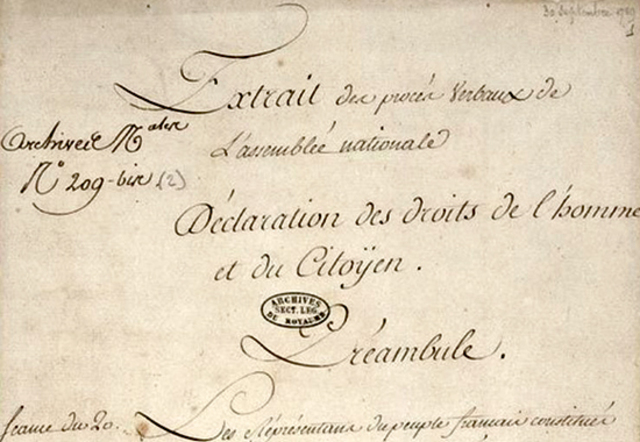 30 Septembre 1789
1
Extrait des procés Verbaux de
L'assemblée nationale
Archives N.ales
N.o 209-bis (2)
Déclaration des droits de l'homme
et du Citoÿen.
ARCHIVES
SECT. LEG.
DU ROYAUME
Préambule.
séance du 20.
Les Représentans du peuple francais constitués